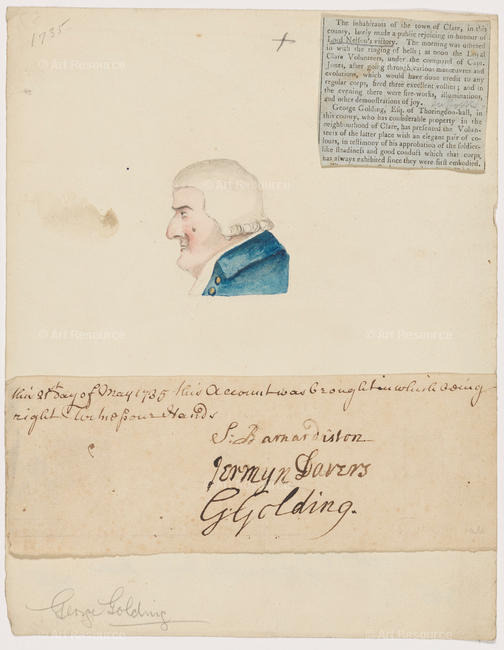 1735
The inhabitants of the town of Clare, in this
county, lately made a public rejoicing in honour of
Lord Nelson's victory. The morning was ushered
in with the ringing of bells; at noon the Loyal
Clare Volunteers, under the command of Capt.
Jones, after going through various manœuvres and
evolutions, which would have done credit to any
regular corps, fired three excellent vollies; and in
the evening there were fire-works, illuminations,
and other demonstrations of joy.
George Golding, Esq. of Thorington-hall, in
this county, who has considerable property in the
neighbourhood of Clare, has presented the Volun-
teers of the latter place with an elegant pair of co-
lours, in testimony of his approbation of the soldier-
like steadiness and good conduct which that corps
has always exhibited since they were first embodied.
this 21st Day of May 1735 this Account was brought in which being
right Witness our Hands
S: Barnardiston
Jermyn Davers
G Golding.
George Golding
© Art Resource
© Art Resource
© Art Resource
© Art Resource
© Art Resource
© Art Resource
© Art Resource
© Art Resource